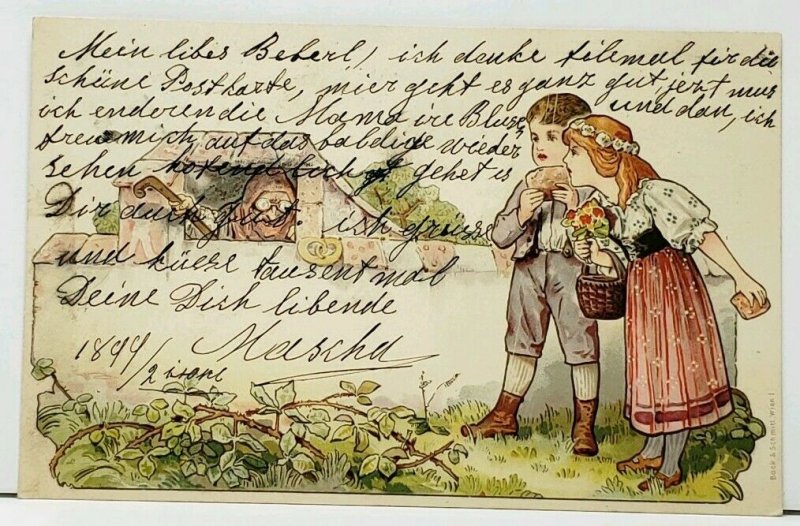 Mein libes Beberl, ich danke filemal für die
schöne Postkarte, mier geht es ganz gut, jezt mus
ich enderen die Mama ire Bluse und dan, ich
freu mich auf das baldige wieder
sehen hofendlich gehet es
Dir auch gut. ich grüse
und küsse tausent mal
Deine Dich libende
1899 Mascha
/2
Back & Schmitt, Wien I